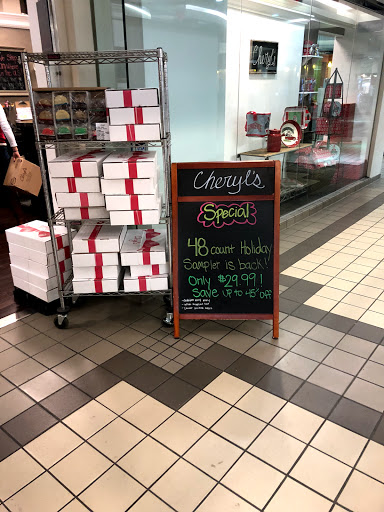 Cheryl's
Cheryl's
Special
48 count Holiday
Sampler is back!
Only $29.99!
Save up to 45% off